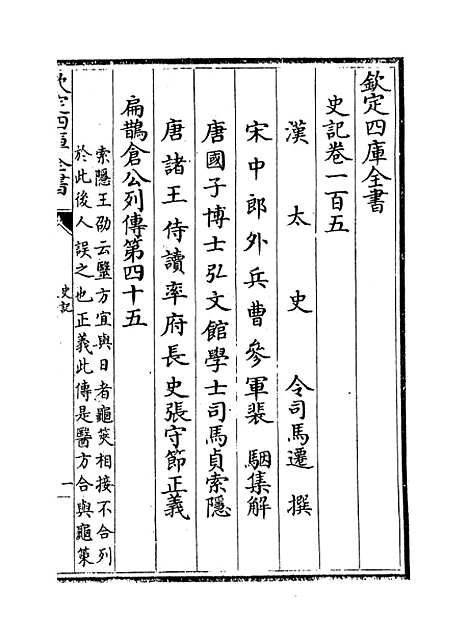 欽定四庫全書
史記卷一百五
漢太史令司馬遷撰
宋中郎外兵曹參軍裴駰集解
唐國子博士弘文館學士司馬貞索隱
唐諸王侍讀率府長史張守節正義
扁鵲倉公列傳第四十五
索隱王劭云毉方宜與日者龜筴相接不合列
於此後人誤之也正義此傳是醫方合與龜策
欽定四庫全書
史記
一